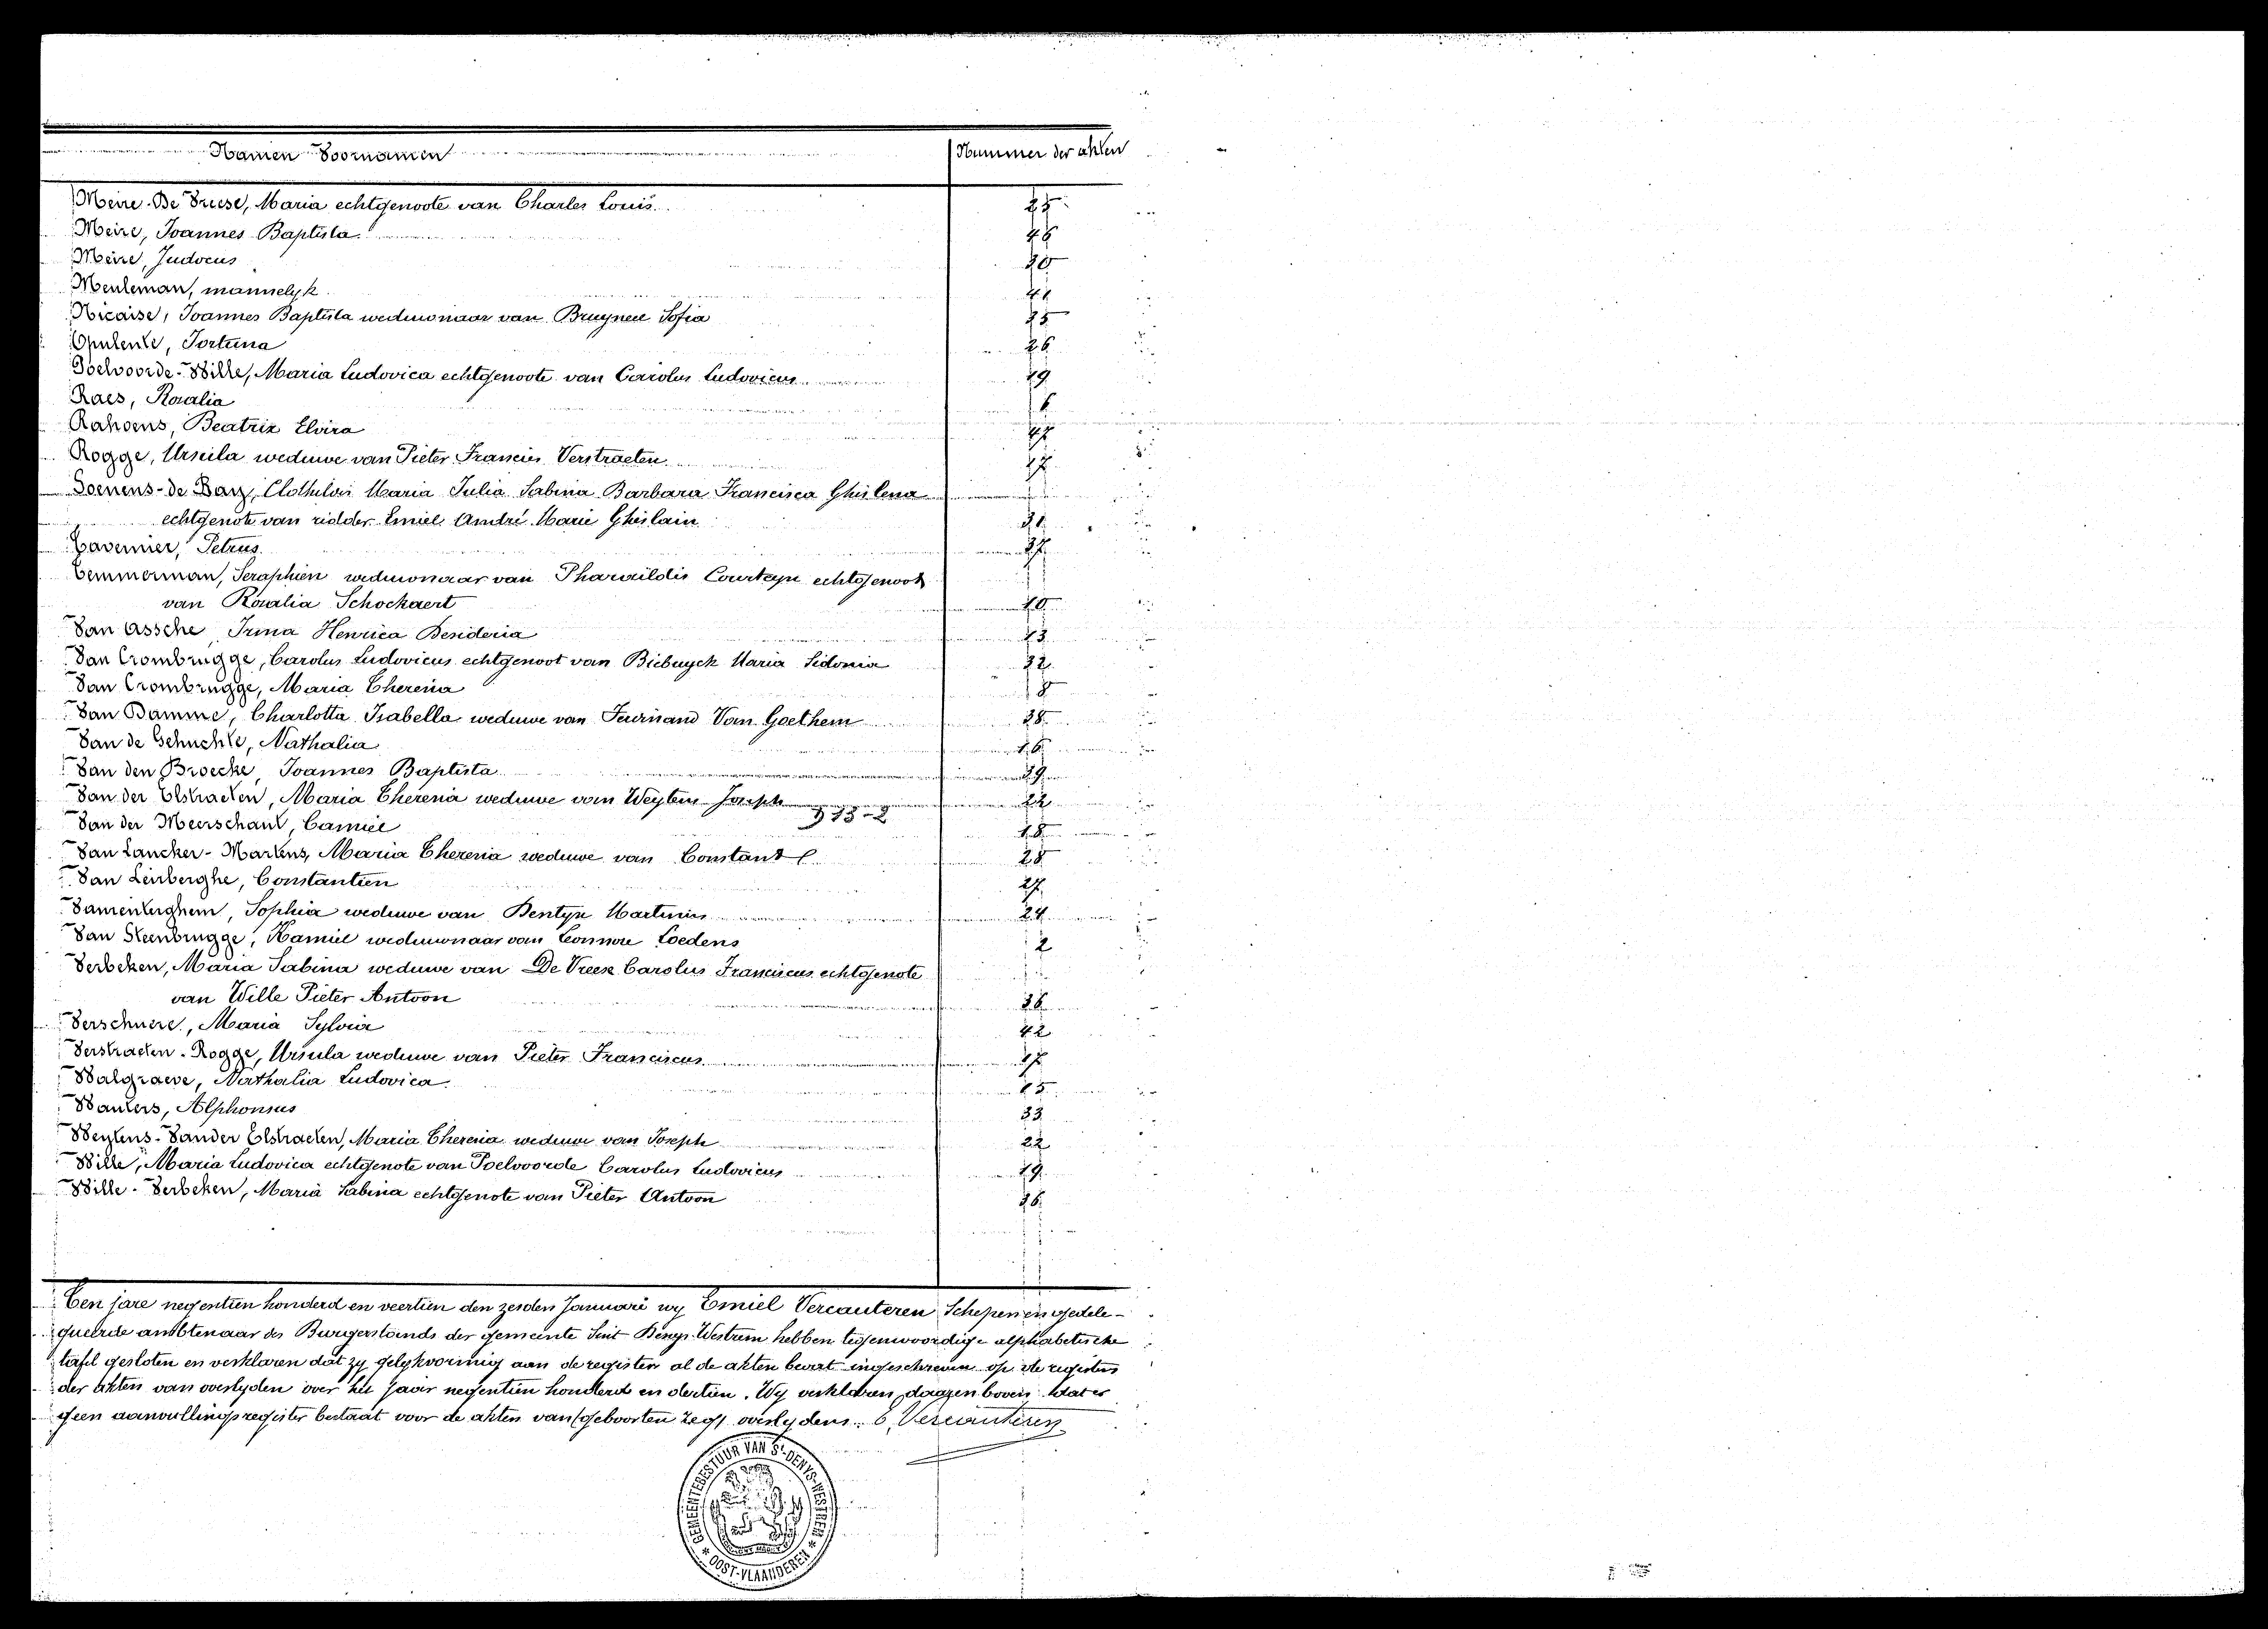 Namen Voornamen Nummer der akten
Meire-De Vreese, Maria echtgenoote van Charles Louis 25
Meire, Joannes Baptista
Meire, Judocus 30
Meuleman, mannelyk 41
Nicaise, Joannes Baptista weduwnaar van Bruyneel Sofia 35
Opulente, Fortuna 26
Poelvoorde-Wille, Maria Ludovica echtgenoote van Carolus Ludovicus 19
Raes, Rosalia 6
Rahoens, Beatrix Elvira
Rogge, Ursula weduwe van Pieter Francies Verstraeten 17
Soenens-de Bay, Clothilde Maria Julia Sabina Barbara Francisca Ghislena
echtgenote van ridder Emiel André Marie Ghislain 31
Tavernier, Petrus 37
Temmerman, Seraphien weduwnaar van Pharaïldis Courteyn echtgenoot
van Rosalia Schockaert 10
Van Assche Irma Henrica Desideria 13
Van Crombrugge, Carolus Ludovicus echtgenoot van Biebuyck Maria Sidonia 32
Van Crombrugge, Maria Theresia 8
Van Damme, Charlotta Isabella weduwe van Ferdinand Van Goethem 38
Van de Gehuchte, Nathalia 16
Van den Broecke, Joannes Baptista 39
Van der Elstraeten, Maria Theresia weduwe van Weytens Joseph 22
913-2
Van der Meerschaut, Camiel 18
Van Lancker-Martens, Maria Theresia weduwe van Constant 28
Van Leirberghe, Constantien 27
Vanrenterghem, Sophia weduwe van Dentyn Martinus 24
Van Steenbrugge, Kamiel weduwnaar van Leonnore Loedens 2
Verbeken, Maria Sabina weduwe van De Vreese Carolus Franciscus echtgenote
van Wille Pieter Antoon 36
Verschuere, Maria Sylvia 42
Verstraeten-Rogge, Ursula weduwe van Pieter Franciscus 17
Walgraeve, Nathalia Ludovica 15
Wauters, Alphonsus 33
Weytens-Vander Elstraeten, Maria Theresia weduwe van Joseph 22
Wille, Maria Ludovica echtgenote van Poelvoorde Carolus Ludovicus 19
Wille-Verbeken, Maria Sabina echtgenote van Pieter Antoon 36
Ten jare negentien honderd en veertien den zesden Januari wy Emiel Vercauteren Schepen en gedele-
gueerde ambtenaar des Burgerstands der gemeente Sint Denys-Westrem hebben tegenwoordige alphabetische
tafel gesloten en verklaren dat zy gelykvormig aan de registers al de akten bevat ingeschreven op de registers
der akten van overlyden over het jaar negentien honderd en dertien. Wy verklaren daarenboven dat er
geen aanvullingsregister bestaat voor de akten van (geboorten zegs overlydens. E. Vercauteren
GEMEENTEBESTUUR VAN St-DENYS-WESTREM
* OOST-VLAANDEREN *